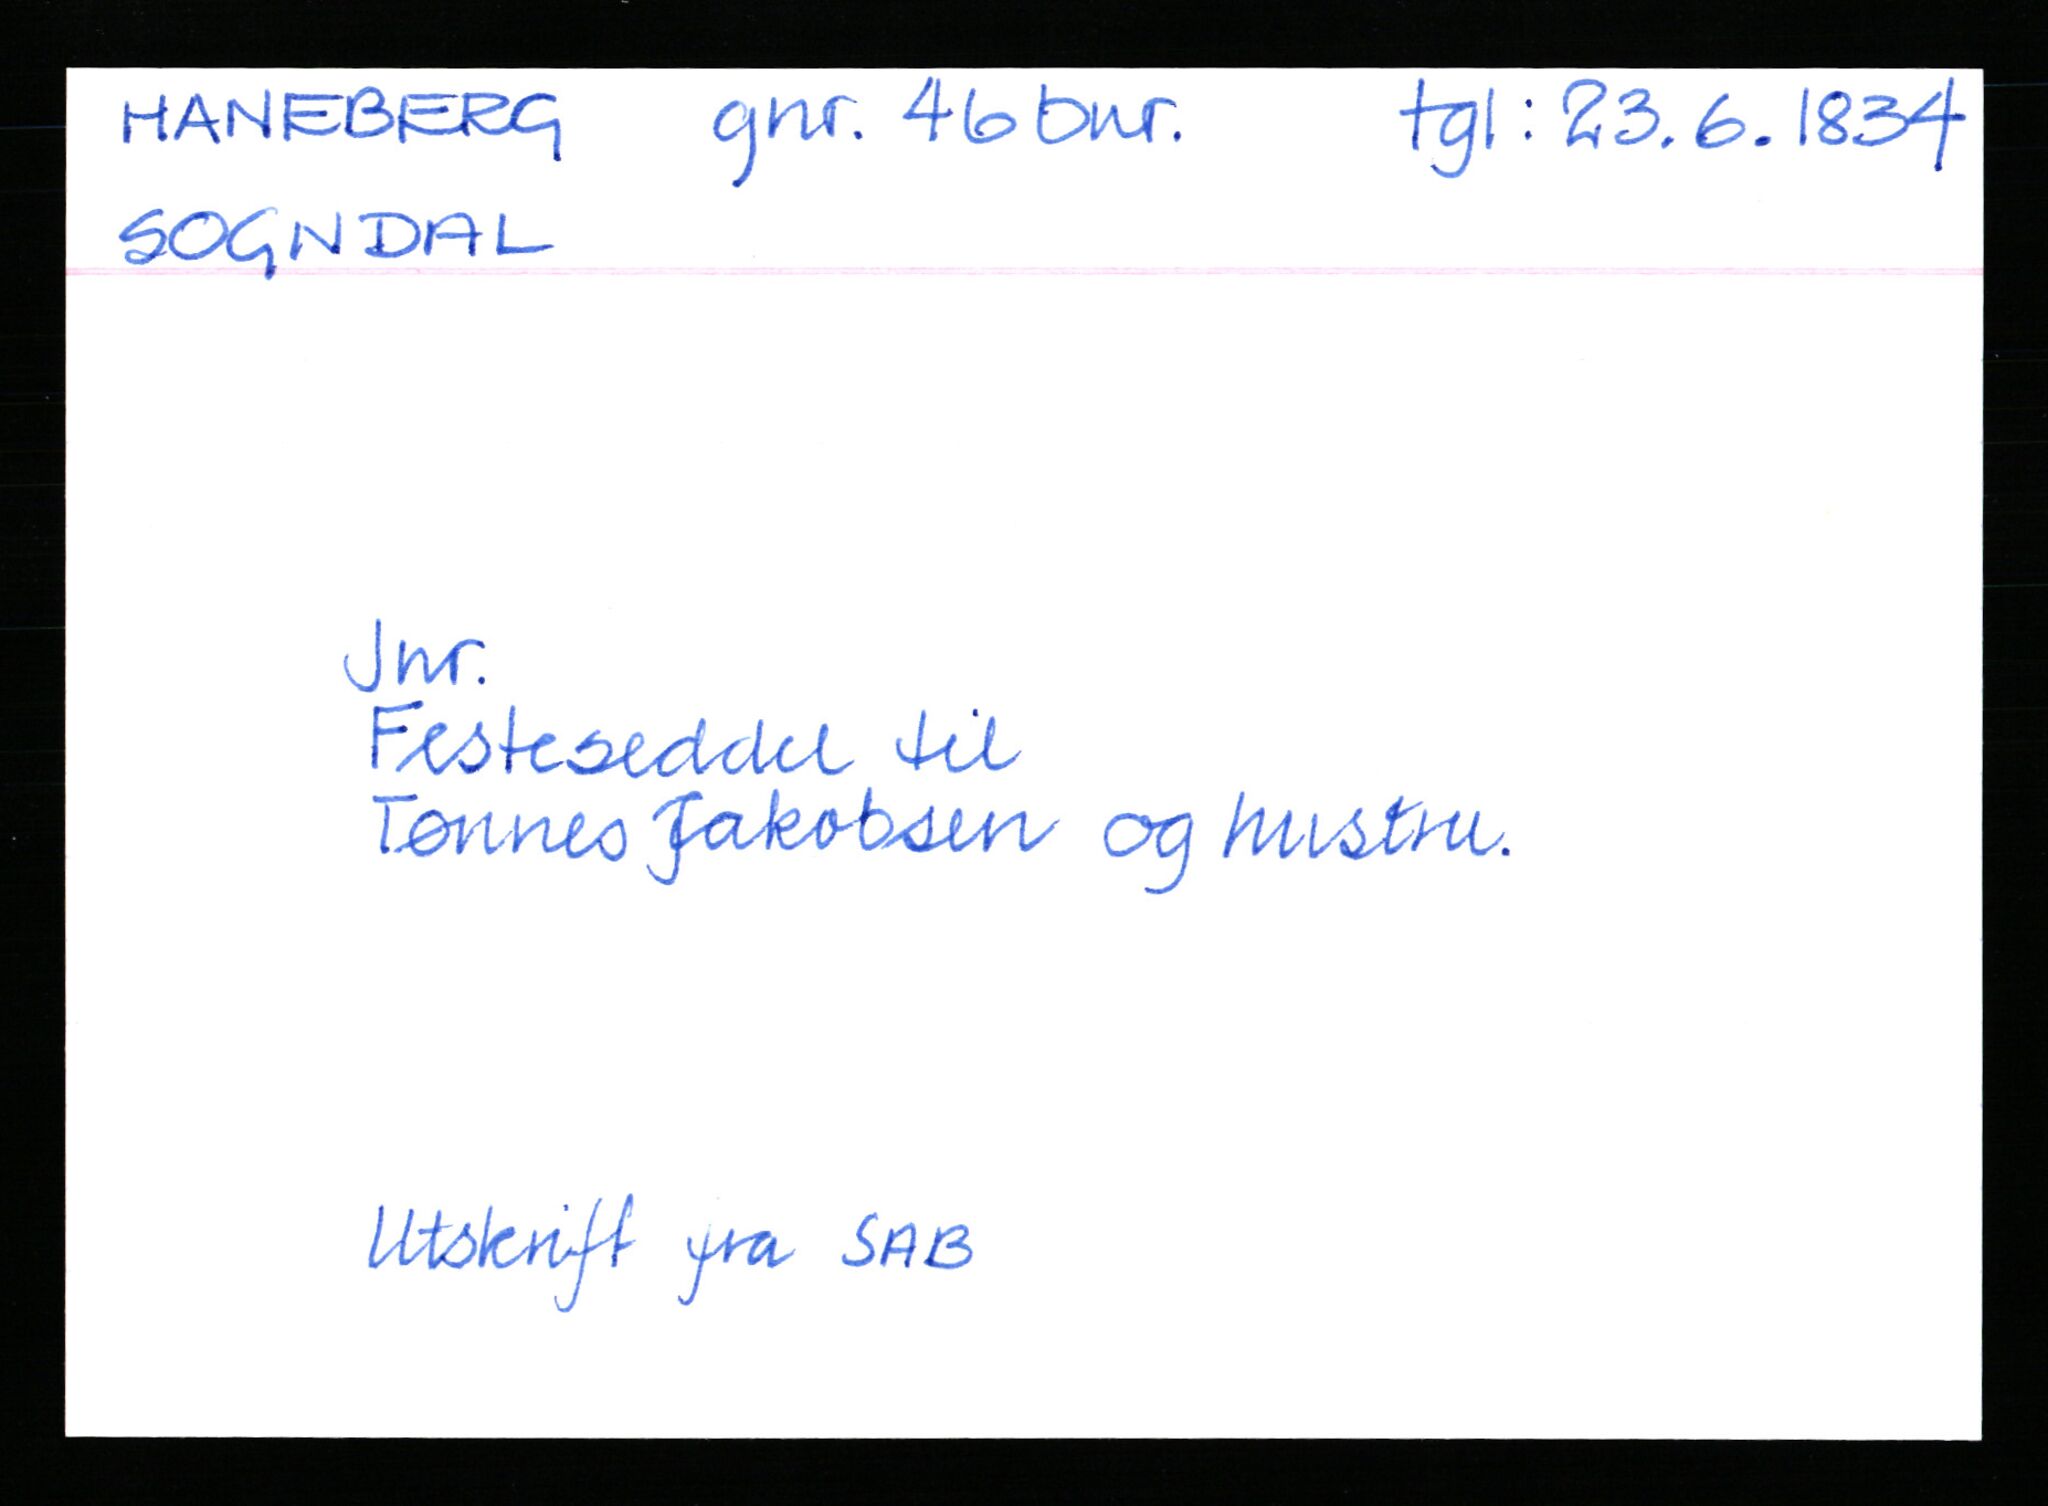 HANEBERG gnr. 46 bnr. tgl: 23.6.1834
SOGNDAL
Jnr.
Festeseddel til
Tønnes Jakobsen og hustru.
Utskrift fra SAB